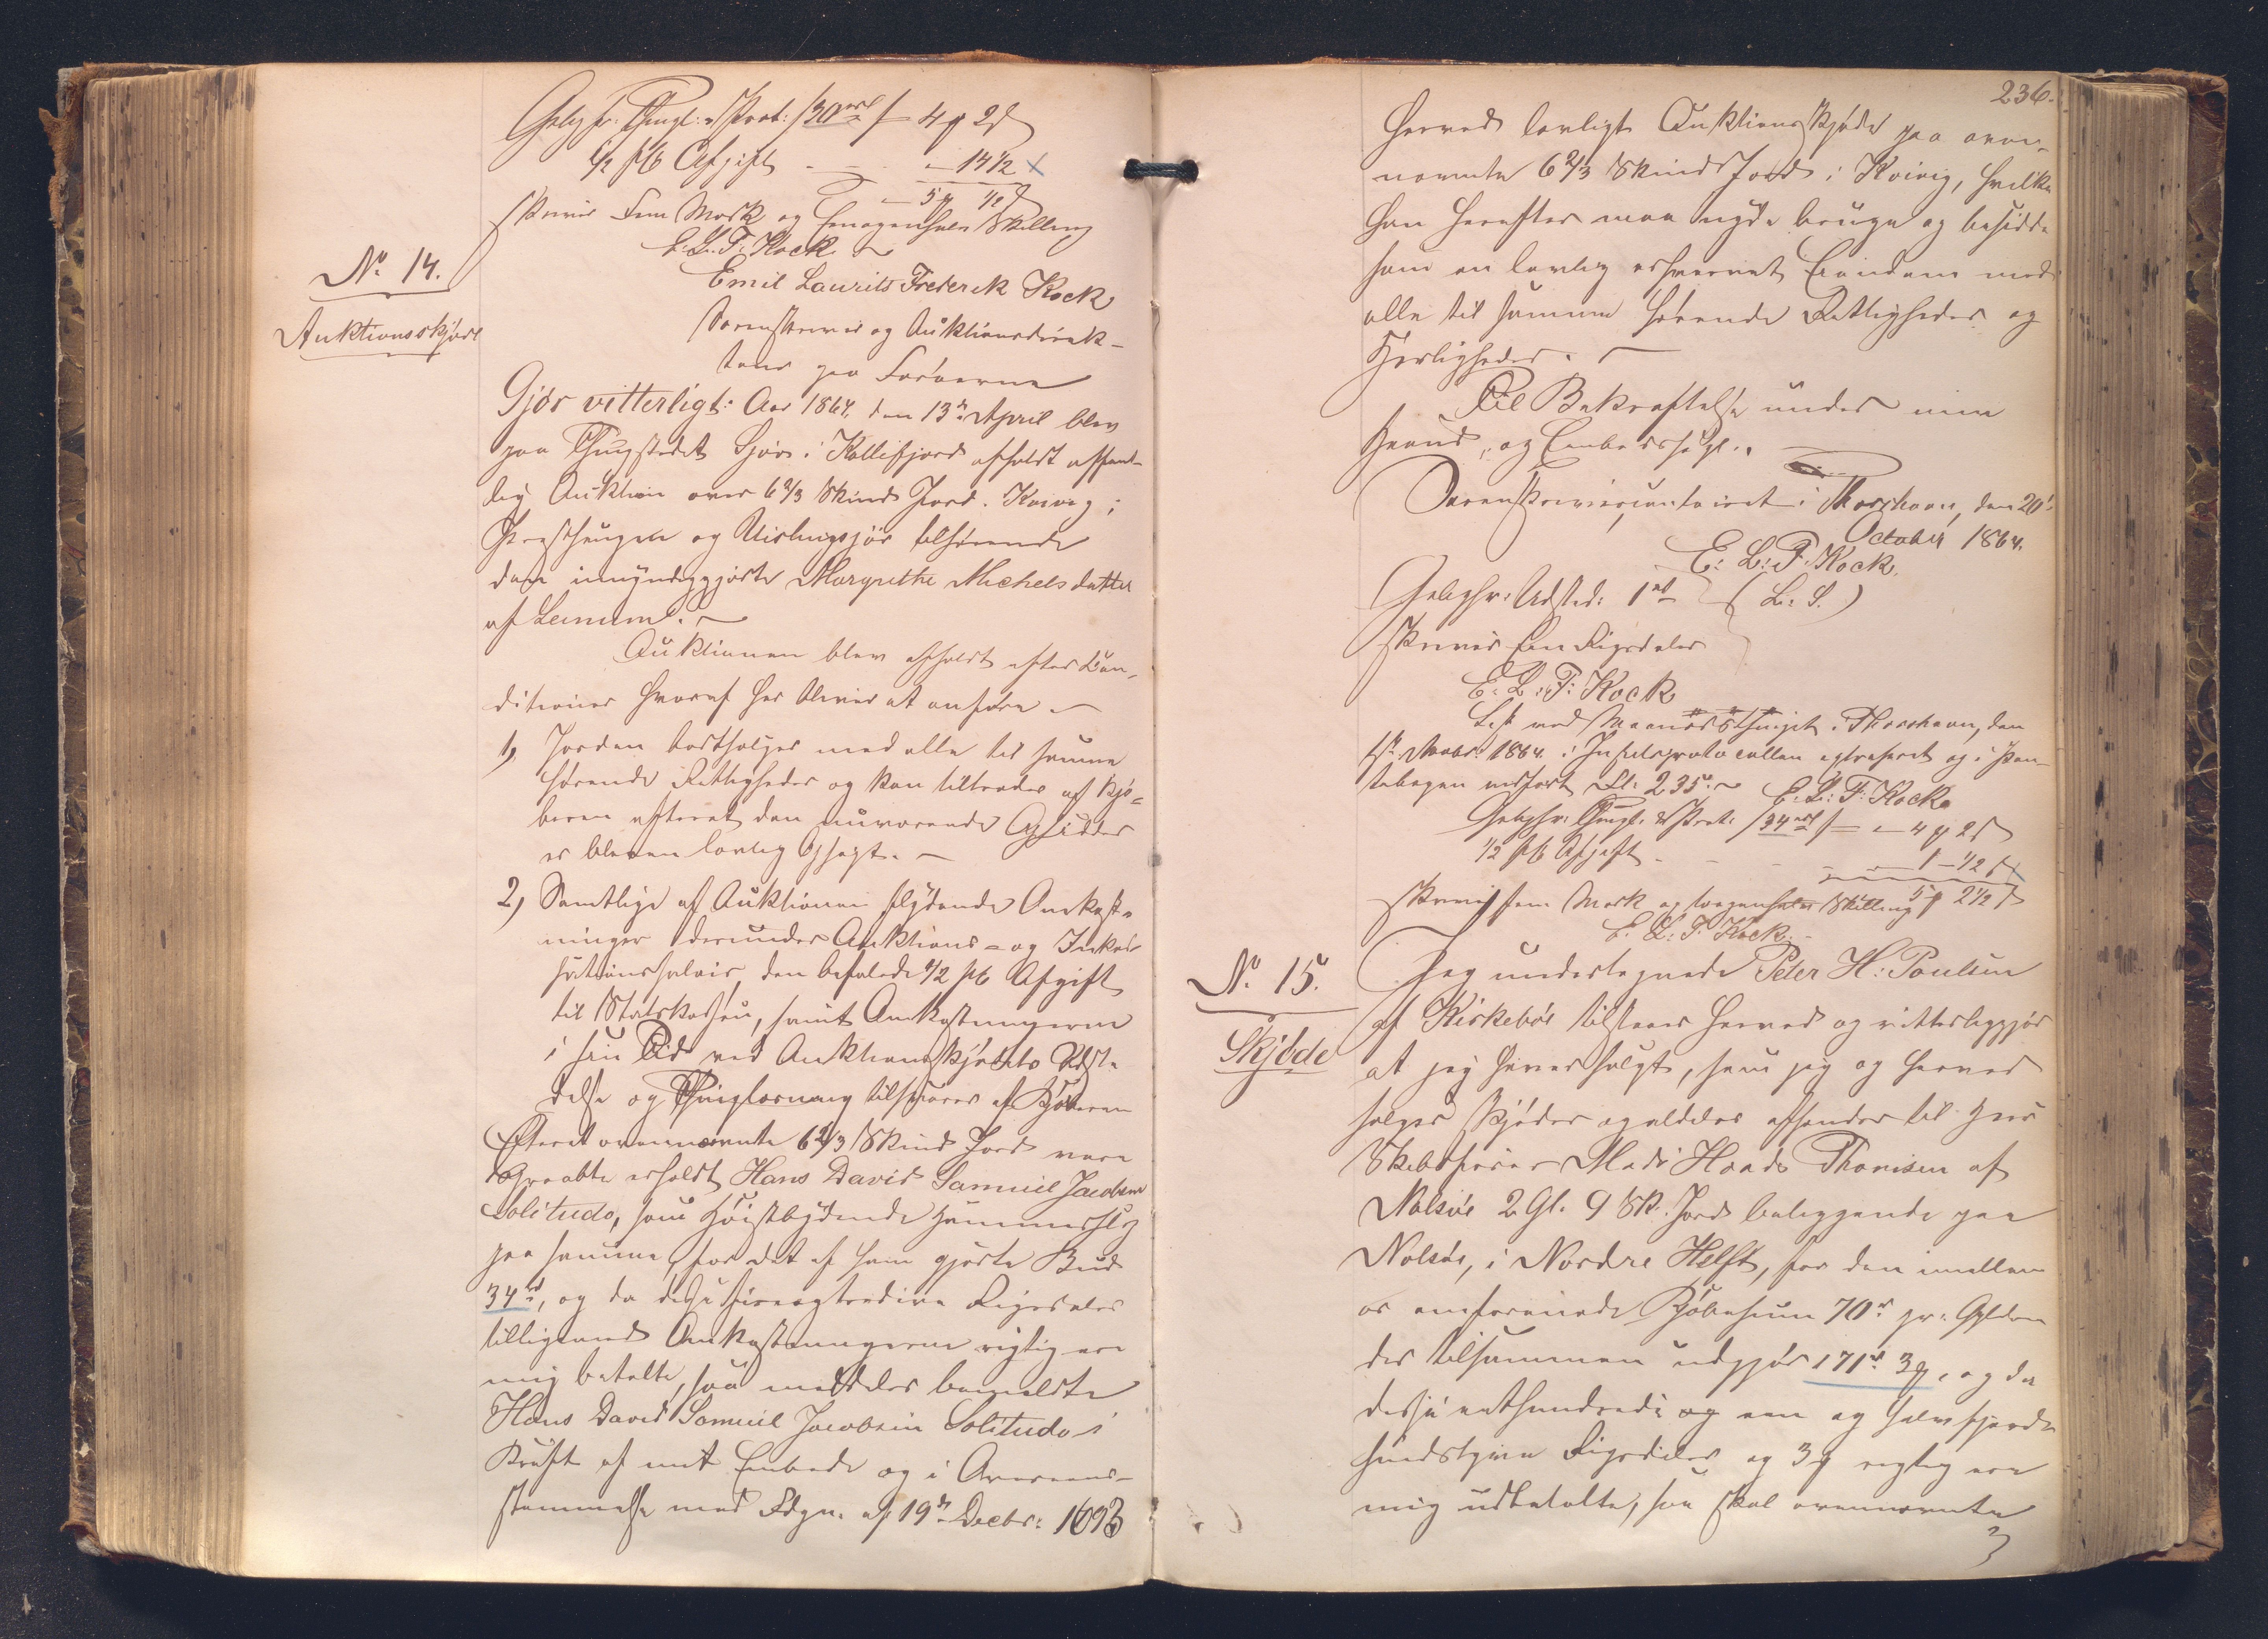 Gebyr f. Thingl: & Prot: /30 rd/ – 4 ₰ 2 ß
½ pC Afgift – – – 14½
– 5 ₰ ½ ß
skriver Fem Mark og Skilling
E. L. F. Kock
No 14.
Auktionsskjøde
Emil Laurits Frederik Kock
Sorenskriver og Auktionsdirek-
teur paa Færøerne
Gjör vitterligt: Aar 1864 den 13de April blev
paa Thingstedet Sjøv i Kollefjord afholdt offent-
lig Auktion over 6 2/3 Skind Jord i Kvivig i
og tilhørende
den umyndiggjorte Margrethe Michelsdatter
af Leinum. –
Auktionen blev afholdt efter Con-
ditioner hvoraf her bliver at anføre –
1, Jorden bortsælges med alle til samme
hørende Rettigheder og kan tiltrædes af Kjø-
beren efterat den nuværende Opsidder
er bleven lovlig opsagt. –
2, Samtlige af Auktionen flydende Omkost-
ninger derunder Auktions- og Inkas-
sationssalair, den befalede ½ pC Afgift
til Statskassen, samt Omkostningerne
i sin Tid ved Auktionsskjødets Udste-
delse og Thinglæsning tilsvares af Kjøberen
Efterat ovennævnte 6 2/3 Skind Jord vare
opraabte erholdt Hans David Samuel Jacobsen
Solitudo, som Høistbydende Hammerslag
paa samme for det af ham gjorte Bud
34 rd, og da disse fireogtredive Rigsdaler
tilligemed Omkostningerne rigtig ere
mig betalte, saa meddeles bemeldte
Hans David Samuel Jacobsen Solitudo i
Kraft af mit Embede og i Overeens-
stemmelse med Fdgn. af 19de Decbr: 1693
236.
herved lovligt Auktionsskjøde paa oven-
nævnte 6 2/3 Skind Jord i Kvivig, hvilke
han herefter maa nyde bruge og besidde
som en lovlig erhvervet Eiendom med
alle til samme hørende Rettigheder og
Herligheder. –
Til Bekræftelse under min
Haand og Embedssegl. –
Sorenskrivercontoiret i Thorshavn, den 20de
October 1864.
E: L: F: Kock.
Gebyhr: Udsted: 1 rd (L. S.)
skriver Een Rigsdaler
E. L. F: Kock
Læst ved Maanedsthinget i Thorshavn, den
Novbr: 1864 i Justitsprotocollen extraheret og i Pan-
tebogen indført Fl: 235. – E. L: F: Kock
Gebyhr: Thingl. & Prot: /34 rd/ – 4 ₰ 2 ß
½ pC Afgift – – – 1 – ½ ß
skriver fem Mark og tregenhalv Skilling 5 ₰ 2½ ß
E. L: F. Kock. –
No 15.
Skjöde
Jeg undertegnede Peter H: Poulsen
af Kirkebøe tilstaaer herved og vitterliggjør
at jeg haver solgt, som jeg og herved
sælger skjøder og aldeles afhænder til Herr
Skibsfører Mads Thomsen af
Nolsøe 2 Gl. 9 Sk. Jord beliggende paa
Nolsøe, i Nordre Helft, for den imellem
os omforenede Kjøbesum 70 rd pr: Gylden
der tilsammen udgjør 171 rd 3 ₰, og da
disse eethundrede og een og halvfjerde-
sindstyve Rigsdaler og 3 ₰ rigtig ere
mig udbetalte, saa skal ovennævnte